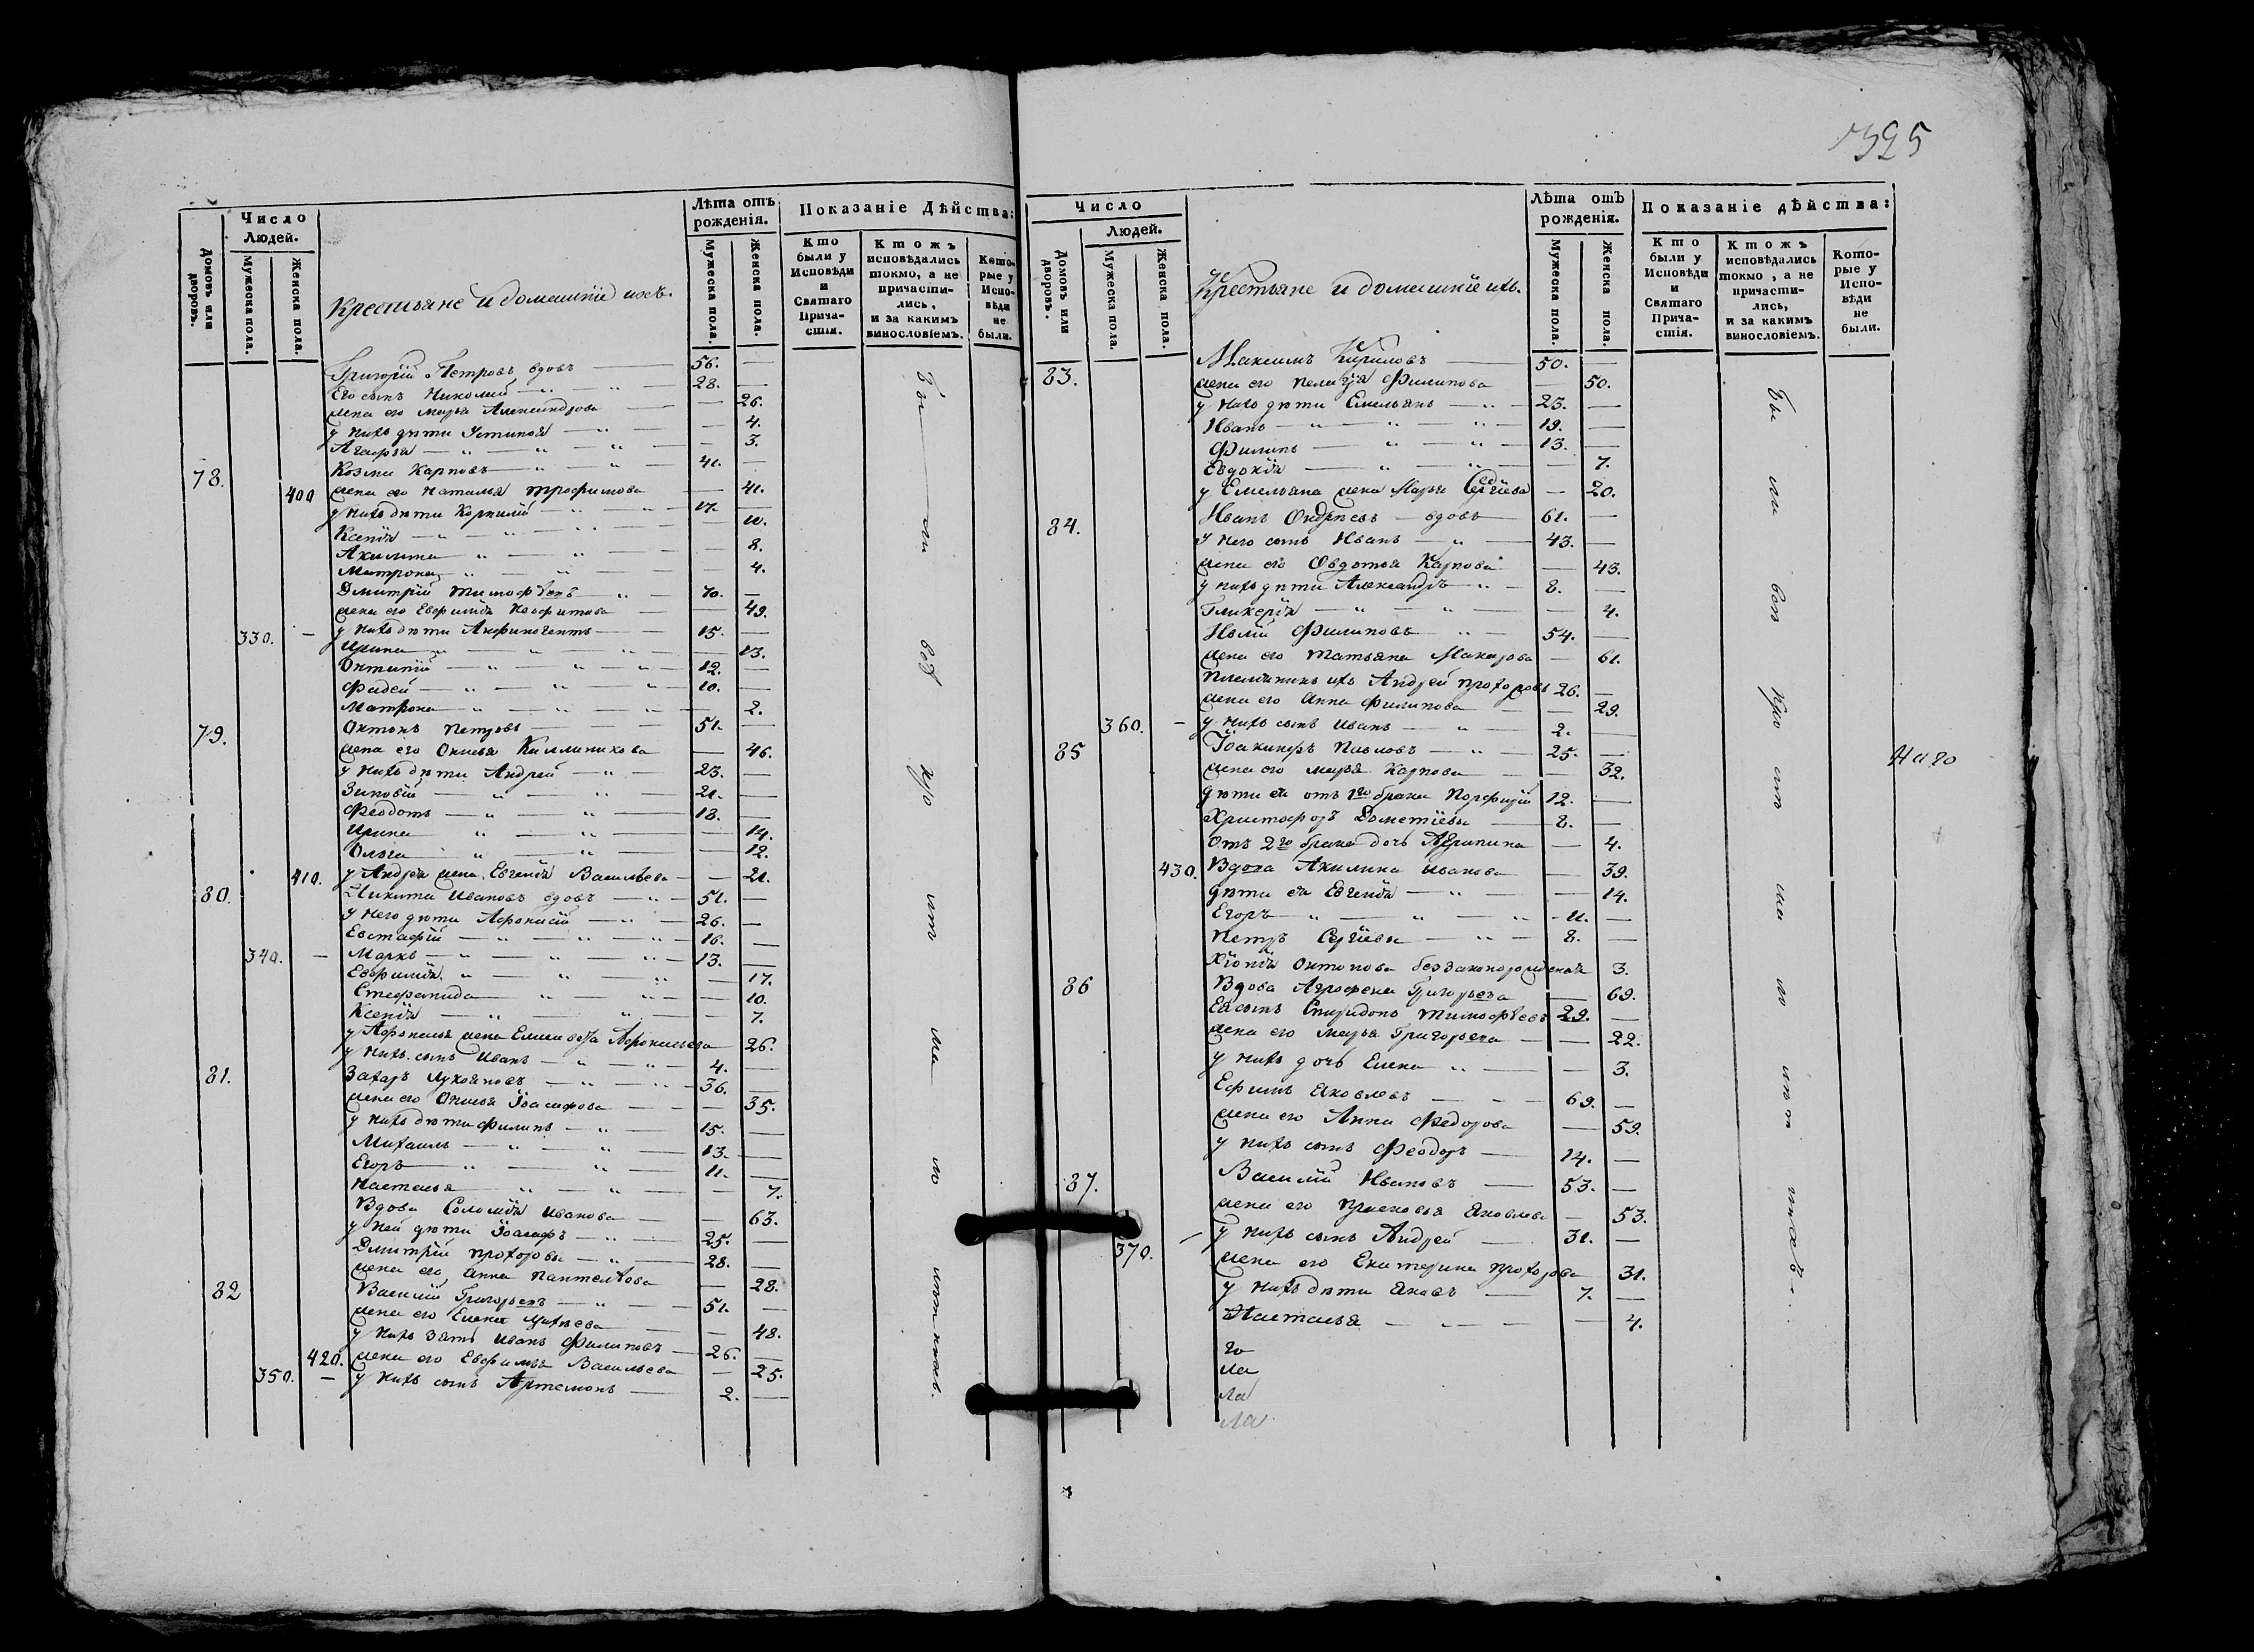 1395
Число
Людей.
Домовъ или дворовъ.
Мужеска пола.
Женска пола.
Крестьяне и домашніе ихъ.
Лѣта отъ рожденія.
Мужеска пола.
Женска пола.
Показаніе Дѣйства:
Кто были у Исповѣди и Святаго Причастія.
Ктожъ исповѣдались токмо, а не причастились, и за какимъ винословіемъ.
Которые у Исповѣди не были.
Григорій Петровъ вдовъ 56.
Его сынъ Николай 28.
жена его Марья Александрова 26.
у нихъ дѣти Устинья 4.
Агафья 3.
78. Козма Карповъ 41.
400 жена его Наталья Трофимова 41.
у нихъ дѣти Корнилій 17.
Ксенія 10.
Акилина 8.
Матрона 4.
Дмитрій Тимофѣевъ 70.
жена его Евфимія Неофитова 49.
330. у нихъ дѣти Анфиногентъ 15.
Ирина 13.
12.
Фадей 10.
Матрона 2.
79. Антонъ Петровъ 51.
жена его Онисья Каллиникова 46.
у нихъ дѣти Андрей 23.
Зиновій 21.
Феодотъ 18.
Ирина 14.
Ольга 12.
410. у Андрея жена Евгенія Васильева 21.
80. Никита Ивановъ вдовъ 51.
у него дѣти Афонасій 26.
Евстафій 16.
340. Марко 13.
Евфимія 17.
Стефанида 10.
Ксенія 7.
у Афонасья жена Елисавета Афонасьева 26.
у нихъ сынъ Иванъ 4.
81. Захаръ Лукояновъ 36.
жена его Онисья Іоасафова 35.
у нихъ дѣти Филипъ 15.
Михаилъ 13.
Егоръ 11.
Настасья 7.
Вдова Соломія Иванова 63.
у ней дѣти Іоасафъ 25.
Дмитрій Прохоровы 28.
жена его Анна Пантелѣева 28.
82 Василій Григорьевъ 51.
жена его Елена Михѣева 48.
у нихъ зять Иванъ Филиповъ 26.
420. жена его Евфимья Васильева 25.
350. у нихъ сынъ Артемонъ 2.
Число
Людей.
Домовъ или дворовъ.
Мужеска пола.
Женска пола.
Крестьяне и домашніе ихъ.
Лѣта отъ рожденія.
Мужеска пола.
Женска пола.
Показаніе дѣйства:
Кто были у Исповѣди и Святаго Причастія.
Ктожъ исповѣдались токмо, а не причастились, и за какимъ винословіемъ.
Которые у Исповѣди не были.
83. Максимъ Кириловъ 50.
жена его Пелагія Филипова 50.
у нихъ дѣти Емельянъ 23.
Иванъ 19.
Филипъ 13.
Евдокія 7.
у Емельяна жена Марья 20.
84. Иванъ Ондреевъ вдовъ 61.
у него сынъ Иванъ 43.
жена его Овдотья Карпова 43.
у нихъ дѣти Александръ 8.
Гликерія 4.
Филиповъ 54.
жена его Татьяна Макарова 61.
Племянникъ ихъ Андрей Прохоровъ 26.
жена его Анна Филипова 29.
360. у нихъ сынъ Иванъ 2.
85 Іоакинфъ Павловъ 25.
жена его Марья Карпова 32.
дѣти ея отъ 1го брака Порфирій 12.
Христофоръ Дометіевы 8.
Отъ 2го брака дочь Агрипина 4.
430. Вдова Акилина Иванова 39.
дѣти ея Евгенія 14.
Егоръ 11.
Петръ Сергіевы 8.
Хіонія Антонова беззаконорожденная 3.
86 Вдова Аграфена Григорьева 69.
Ея сынъ Спиридонъ Тимофѣевъ 29.
жена его Марья Григорьева 22.
у нихъ дочь Елена 3.
Ефимъ Яковлевъ 69.
жена его Анна Федорова 59.
у нихъ сынъ Феодоръ 14.
87. Василій Ивановъ 53.
жена его Прасковья Яковлева 53.
370. у нихъ сынъ Андрей 31.
жена его Екатерина Прохорова 31.
у нихъ дѣти Яковъ 7.
Настасья 4.